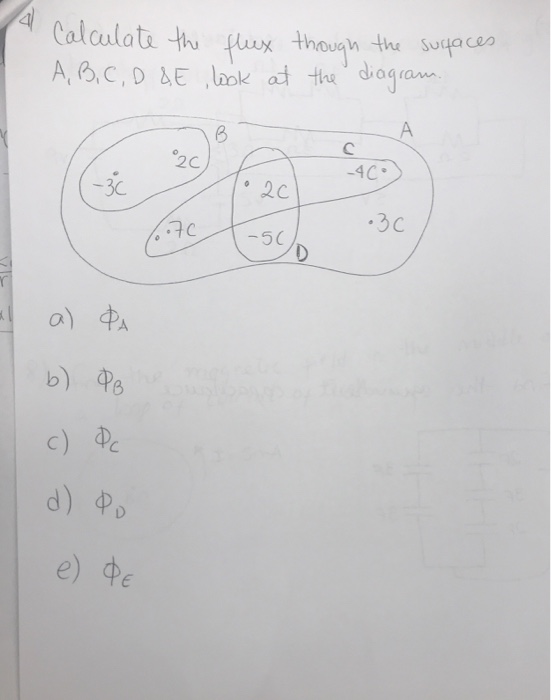 4) Calculate the flux through the surfaces
A, B, C, D & E, look at the diagram.
B
A
C
2C
-4C
-3C
2C
.7C
.3C
-5C
D
a) ΦA
b) ΦB
c) Φc
d) ΦD
e) ΦE